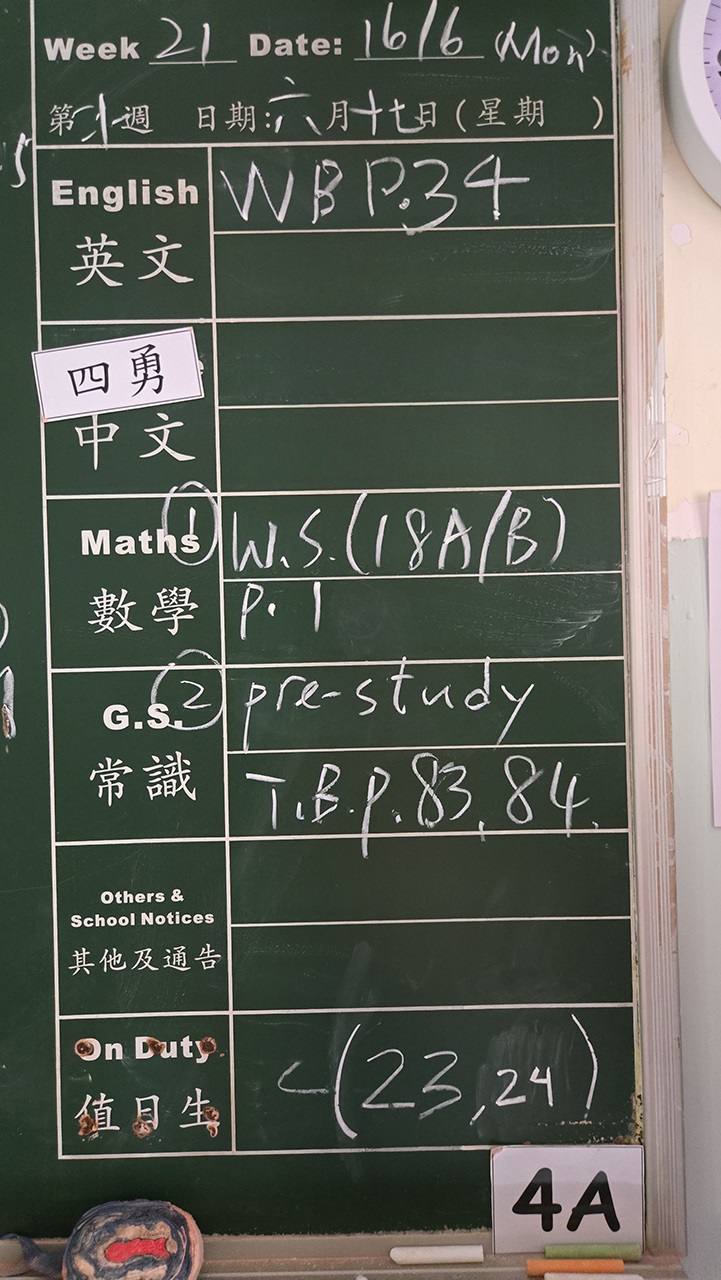 Week 21 Date: 16/6 (Mon)
第 週 日期:六月十七日(星期 )
English WB P.34
英文
四勇
中文
Maths ① W.S.(18A/B)
數學 P.1
G.S. ② pre-study
常識 T.B.P.83,84.
Others &
School Notices
其他及通告
On Duty
值日生 <(23,24)
4A